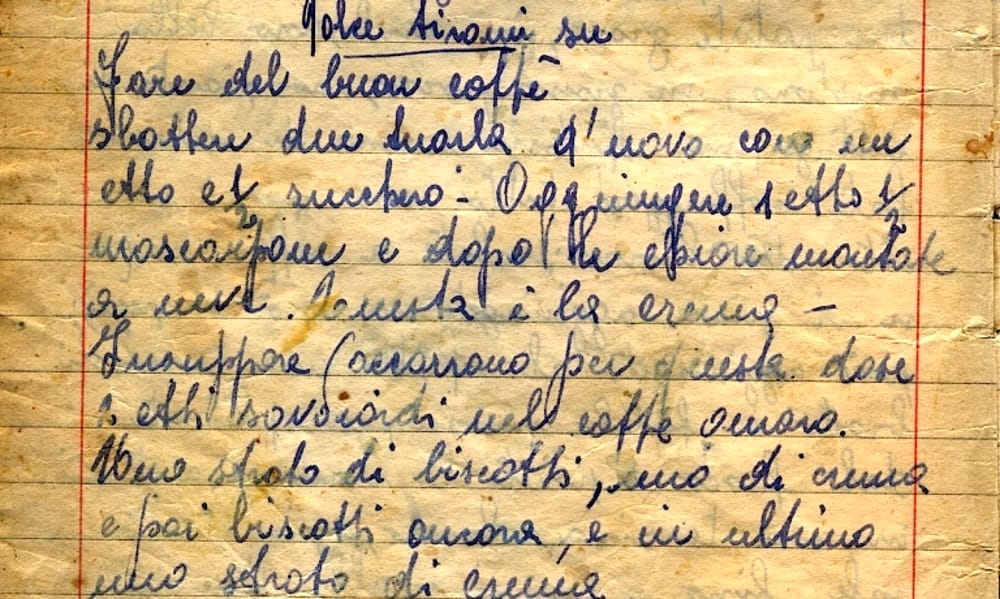 Dolce tiromi su
Fare del buon caffè
sbattere due tuorla d'uovo con un
etto e 1/2 zucchero - Aggiungere 1 etto 1/2
mascarpone e dopo le chiare montate
a neve. Questa è la crema -
Inzuppare (occorrono per questa dose
2 etti savoiardi nel caffè amaro.
Uno strato di biscotti, uno di crema
e poi biscotti ancora, e in ultimo
uno strato di crema